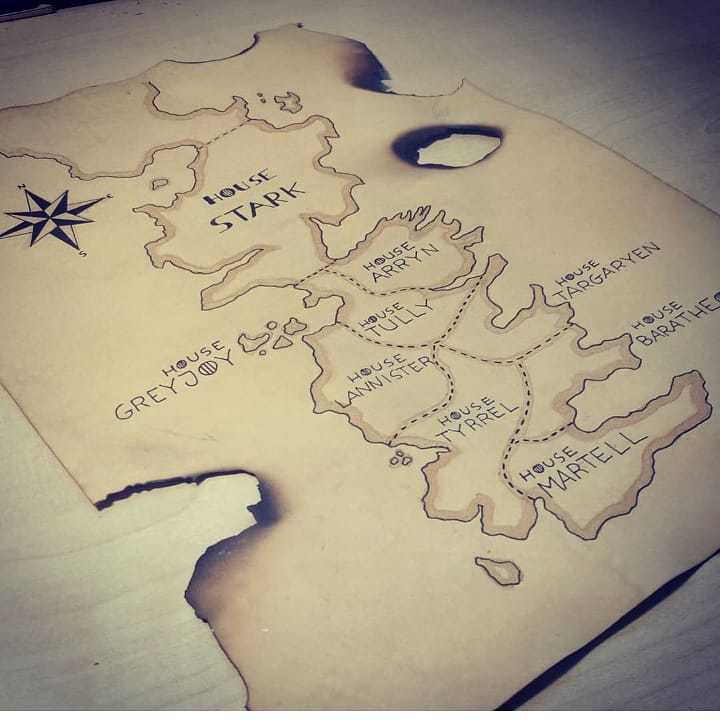 N
E
S
HOUSE
STARK
HOUSE
ARRYN
HOUSE
TULLY
HOUSE
TARGARYEN
HOUSE
BARATHEO
HOUSE
GREYJOY
HOUSE
LANNISTER
HOUSE
TYRREL
HOUSE
MARTELL